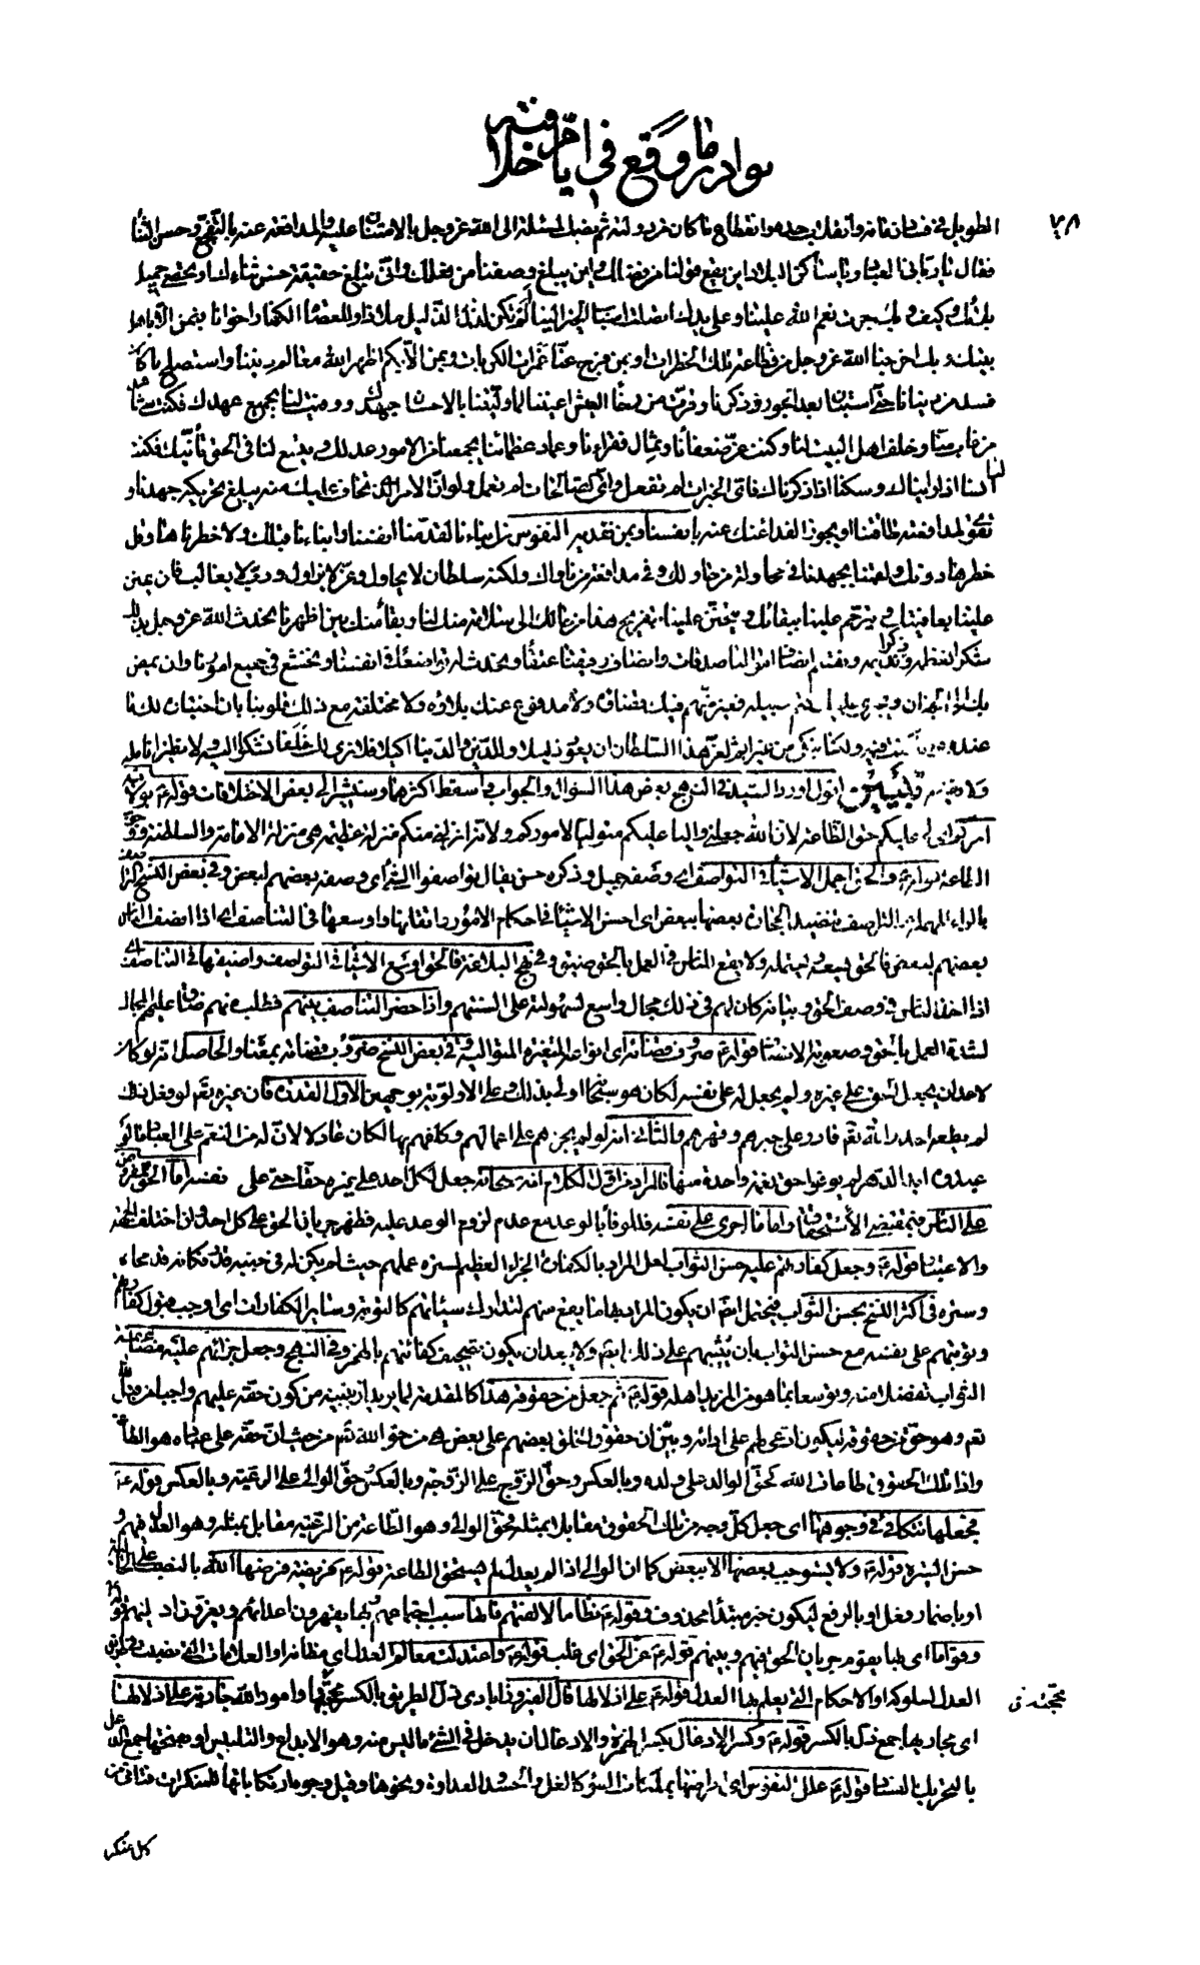 نوادر ما وقع في ايام خلافته
٧٨
الطويل في فساد زمانه وانقلاب جده وانقطاع ما كان من دولته ثم نصب المسئلة الى الله عز وجل بالامتنان عليه والمدافعة عنه بالتفجع وحسن الثناء
فقال يا رباني العباد ويا ساكن البلاد اين يقع قولنا من فضلك واين يبلغ وصفنا من فعلك وانى نبلغ حقيقة حسن ثناءك او نحصي جميل
بلائك وكيف وبك جرت نعم الله علينا وعلى يدك اتصلت اسباب الخير الينا الم تكن لذل الذليل ملاذا وللعصاة الكفار اخوانا فبمن الا باهل
بيتك وبك اخرجنا الله عز وجل من فظاعة تلك الخطرات او بمن فرج عنا غمرات الكربات وبمن الا بكم اظهر الله معالم ديننا واستصلح ما كان
فسد من دنيانا حتى استبان بعد الجور ذكرنا وقرت من رخاء العيش اعيننا لما وليتنا بالاحسان جهدك ووفيت لنا بجميع عهدك فكنت شاهد
من غاب منا وخلف اهل البيت لنا وكنت عز ضعفائنا وثمال فقرائنا وعماد عظمائنا يجمعنا من الامور عدلك ويتسع لنا في الحق تأنيك فكنت
لنا انسا اذا رايناك وسكنا اذا ذكرناك فاي الخيرات لم تفعل واي الصالحات لم تعمل ولو ان الامر الذي نخاف عليك منه يبلغ تحريكه جهدنا و
تقوى لمدافعته طاقتنا او يجوز الفداء عنك منه بانفسنا وبمن نفديه النفوس من ابنائنا لقدمنا انفسنا وابناءنا قبلك ولاخطرناها وقل
خطرها دونك ولقمنا بجهدنا في محاولة من حاولك وفي مدافعة من ناواك ولكنه سلطان لا يحاول وعز لا يزاول ورب لا يغالب فان يمنن
علينا بعافيتك ويترحم علينا ببقائك ويتحنن علينا بتفريج هذا من حالك الى سلامة منك لنا وبقاء منك بين اظهرنا نحدث الله عز وجل بذلك
شكرا نعظمه وذكرا نديمه ونقسم انصاف اموالنا صدقات وانصاف رقيقنا عتقاء ونحدث له تواضعا في انفسنا ونخشع في جميع امورنا وان يمض
بك الى الجنان ويجري عليك حتم سبيله فغير متهم فيك قضاؤه ولا مدفوع عنك بلاؤه ولا مختلفة مع ذلك قلوبنا بان اختياره لك ما
عنده على ما كنت فيه ولكنا نبكي من غير اثم لعز هذا السلطان ان يعود ذليلا وللدين والدنيا اكيلا فلا نرى لك خلفا نشكو اليه ولا نظيرا نامله
ولا نقيمه تبيين اقول اورد السيد في النهج بعض هذا السؤال والجواب واسقط اكثرها وسنشير الى بعض الاختلافات قوله ع بولاية
امركم اي لي عليكم حق الطاعة لان الله جعلني واليا عليكم متوليا لاموركم ولانه انزلني منكم منزلة عظيمة هي منزلة الامامة والسلطنة ووجوب
الطاعة قوله ع والحق اجمل الاشياء في التواصف اي وصفه جميل وذكره حسن يقال تواصفوا الشئ اي وصفه بعضهم لبعض وفي بعض النسخ
بعضهم لبعض فالحق يسعه ويحتمله ولا يقع للناس في العمل بالحق ضيق وفي نهج البلاغة فالحق اوسع الاشياء في التواصف واضيقها في التناصف اي
اذا اخذ الناس في وصف الحق وبيانه كان لهم في ذلك مجال واسع لسهولته على السنتهم واذا حضر التناصف بينهم فطلب منهم ضاق عليهم المجال
لشدة العمل بالحق وصعوبة الانصاف قوله ع صروف قضائه اي انواعه المتغيرة المتوالية وفي بعض النسخ ضروب قضائه بمعناه والحاصل انه لو كان
لاحد ان يجعل الحق على غيره ولم يجعل له على نفسه لكان هو سبحانه اولى بذلك وعلى الاولوية بوجهين الاول القدرة فان غيره تعالى لو فعل ذلك
لم يطعه احد والله تعالى قادر على جبرهم وقهرهم والثاني انه لو لم يجزهم على اعمالهم وكلفهم بها لكان عادلا لان له من النعم على العباد ما لو
عبدوه ابد الدهر لم يوفوا حق نعمة واحدة منها فالمراد من اول الكلام انه سبحانه جعل لكل احد على غيره حقا حتى على نفسه اما الحق المفروض
على الناس فبمقتضى الاستحقاق واما ما اجرى على نفسه فللوفاء بالوعد مع عدم لزوم الوعد عليه فظهر جريان الحق على كل احد وان اختلف الجهة
والاعتبار قوله ع وجعل كفارتهم عليه حسن الثواب لعل المراد بالكفارة الجزاء العظيم لستره عملهم حيث لم يكن له في جنبه قدر فكانه قد محاه
وستره في اكثر النسخ بحسن الثواب فيحتمل ايضا ان يكون المراد بها ما يقع منهم لتدارك سيئاتهم كالتوبة وسائر الكفارات اي اوجب قبول كفارتهم
وتوبتهم على نفسه مع حسن الثواب بان يثيبهم على ذلك ايضا ولا يبعد ان يكون تصحيف كفائتهم بالهمز وفي النهج وجعل جزائهم عليه مضاعفة
الثواب تفضلا منه وتوسعا بما هو من المزيد اهله قوله ع ثم جعل من حقوقه هذا كالمقدمة لما يريد ان يبينه من كون حقه عليهم واجبا من قبل الله
تعالى وهو حق من حقوقه ليكون ادعى لهم على ادائه وبين ان حقوق الخلق بعضهم على بعض هي من حق الله تعالى من حيث ان حقه على عباده هو الطاعة
واداء تلك الحقوق طاعات الله كحق الوالد على ولده وبالعكس وحق الزوج على الزوجة وبالعكس وحق الوالي على الرعية وبالعكس قوله ع
فجعلها تتكافى في وجوهها اي جعل كل وجه من تلك الحقوق مقابلا بمثله فحق الوالي وهو الطاعة من الرعية مقابل بمثله وهو العدل فيهم و
حسن السيرة قوله ع ولا يستوجب بعضها الا ببعض كما ان الوالي اذا لم يعدل لم يستحق الطاعة قوله ع فريضة فرضها الله بالنصب على الحالية
او باضمار فعل او بالرفع ليكون خبر مبتدأ محذوف وقوله ع نظاما لالفتهم فانها سبب اجتماعهم وبها يقهرون اعدائهم ويعز دينهم قوله ع
وقواما اي بها يقوم جريان الحق فيهم وبينهم قوله ع عز الحق اي غلب قوله ع واعتدلت معالم العدل اي مظانه او العلامات التي نصبت في طريق
العدل لسلوكه او الاحكام التي يعلم بها العدل قوله ع على اذلالها قال الفيروزابادي ذل الطريق بالكسر محجته وامور الله جارية على اذلالها
محجته ن
اي مجاريها جمع ذل بالكسر قوله ع وكثر الادغال بكسر الهمزة والادغال ان يدخل في الشئ ما ليس منه وهو الابداع والتلبيس او بفتحها جمع الدغل
بالتحريك الفساد قوله ع علل النفوس اي امراضها بملكات السوء كالغل والحسد والعداوة ونحوها وقيل وجوه ارتكاباتها للمنكرات فتاتي من
كل منكر